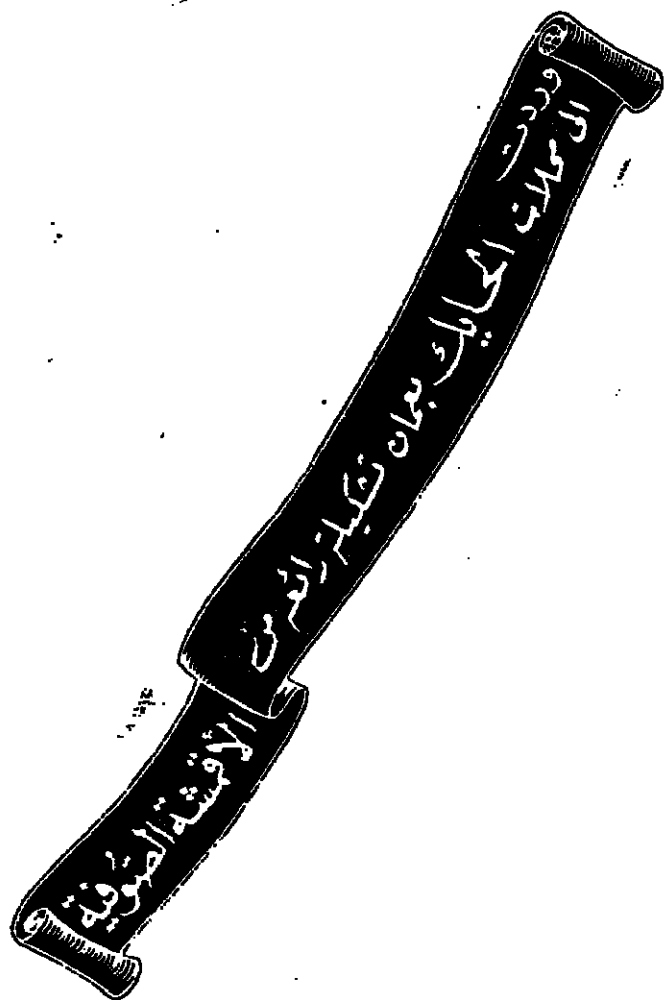 وردت
الى محلات الحايك بعمان تشكيلة رائعة من
الأقمشة الصوفية